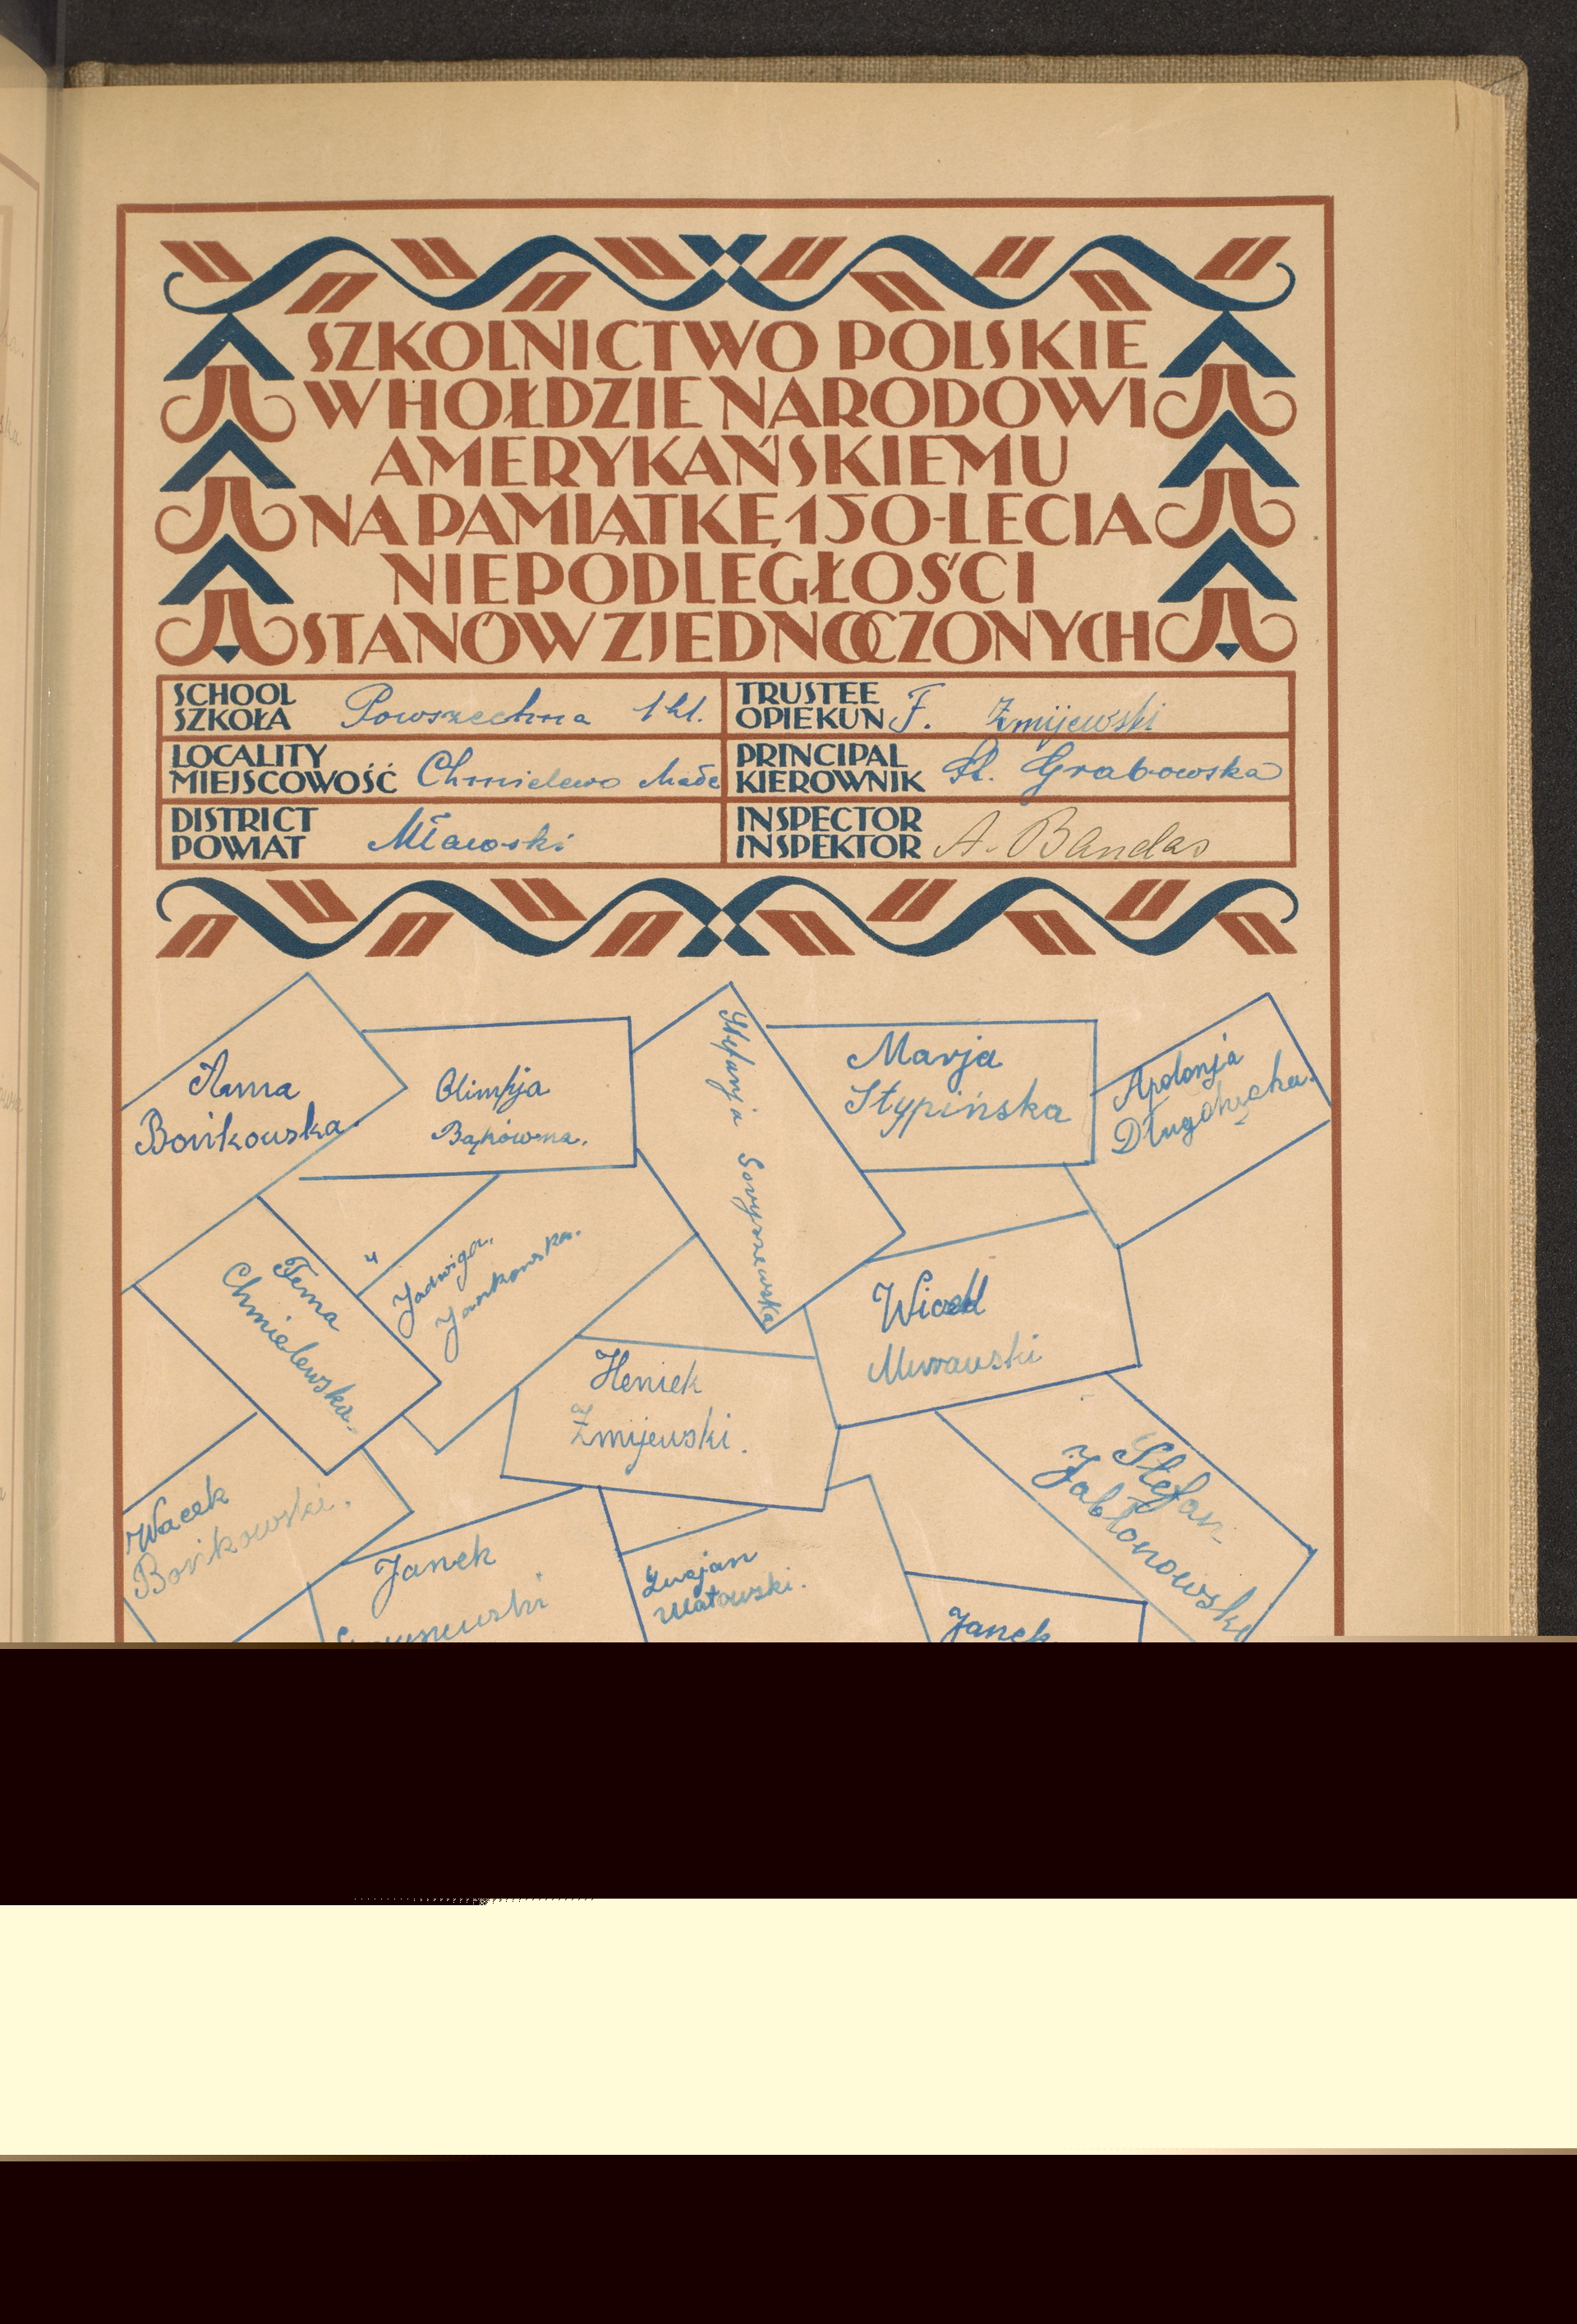 SZKOLNICTWO POLSKIE
W HOŁDZIE NARODOWI
AMERYKAŃSKIEMU
NA PAMIĄTKĘ 150-LECIA
NIEPODLEGŁOŚCI
STANÓW ZJEDNOCZONYCH
SCHOOL
SZKOŁA Powszechna 1 kl.
TRUSTEE
OPIEKUN F. Żmijewski
LOCALITY
MIEJSCOWOŚĆ Chmielewo Małe
PRINCIPAL
KIEROWNIK St. Grabowska
DISTRICT
POWIAT Mławski
INSPECTOR
INSPEKTOR A. Bandas
Anna
Bońkowska.
Olimpja
Bąkówna.
Stefanja
Marja
Stypińska
Apolonja
Chmielewska.
Jadwiga
Jankowska.
Heniek
Żmijewski.
Wicek
Murawski
Stefan
Jabłonowski
Wacek
Bońkowski.
Janek
Lucjan
Watowski.
Janek